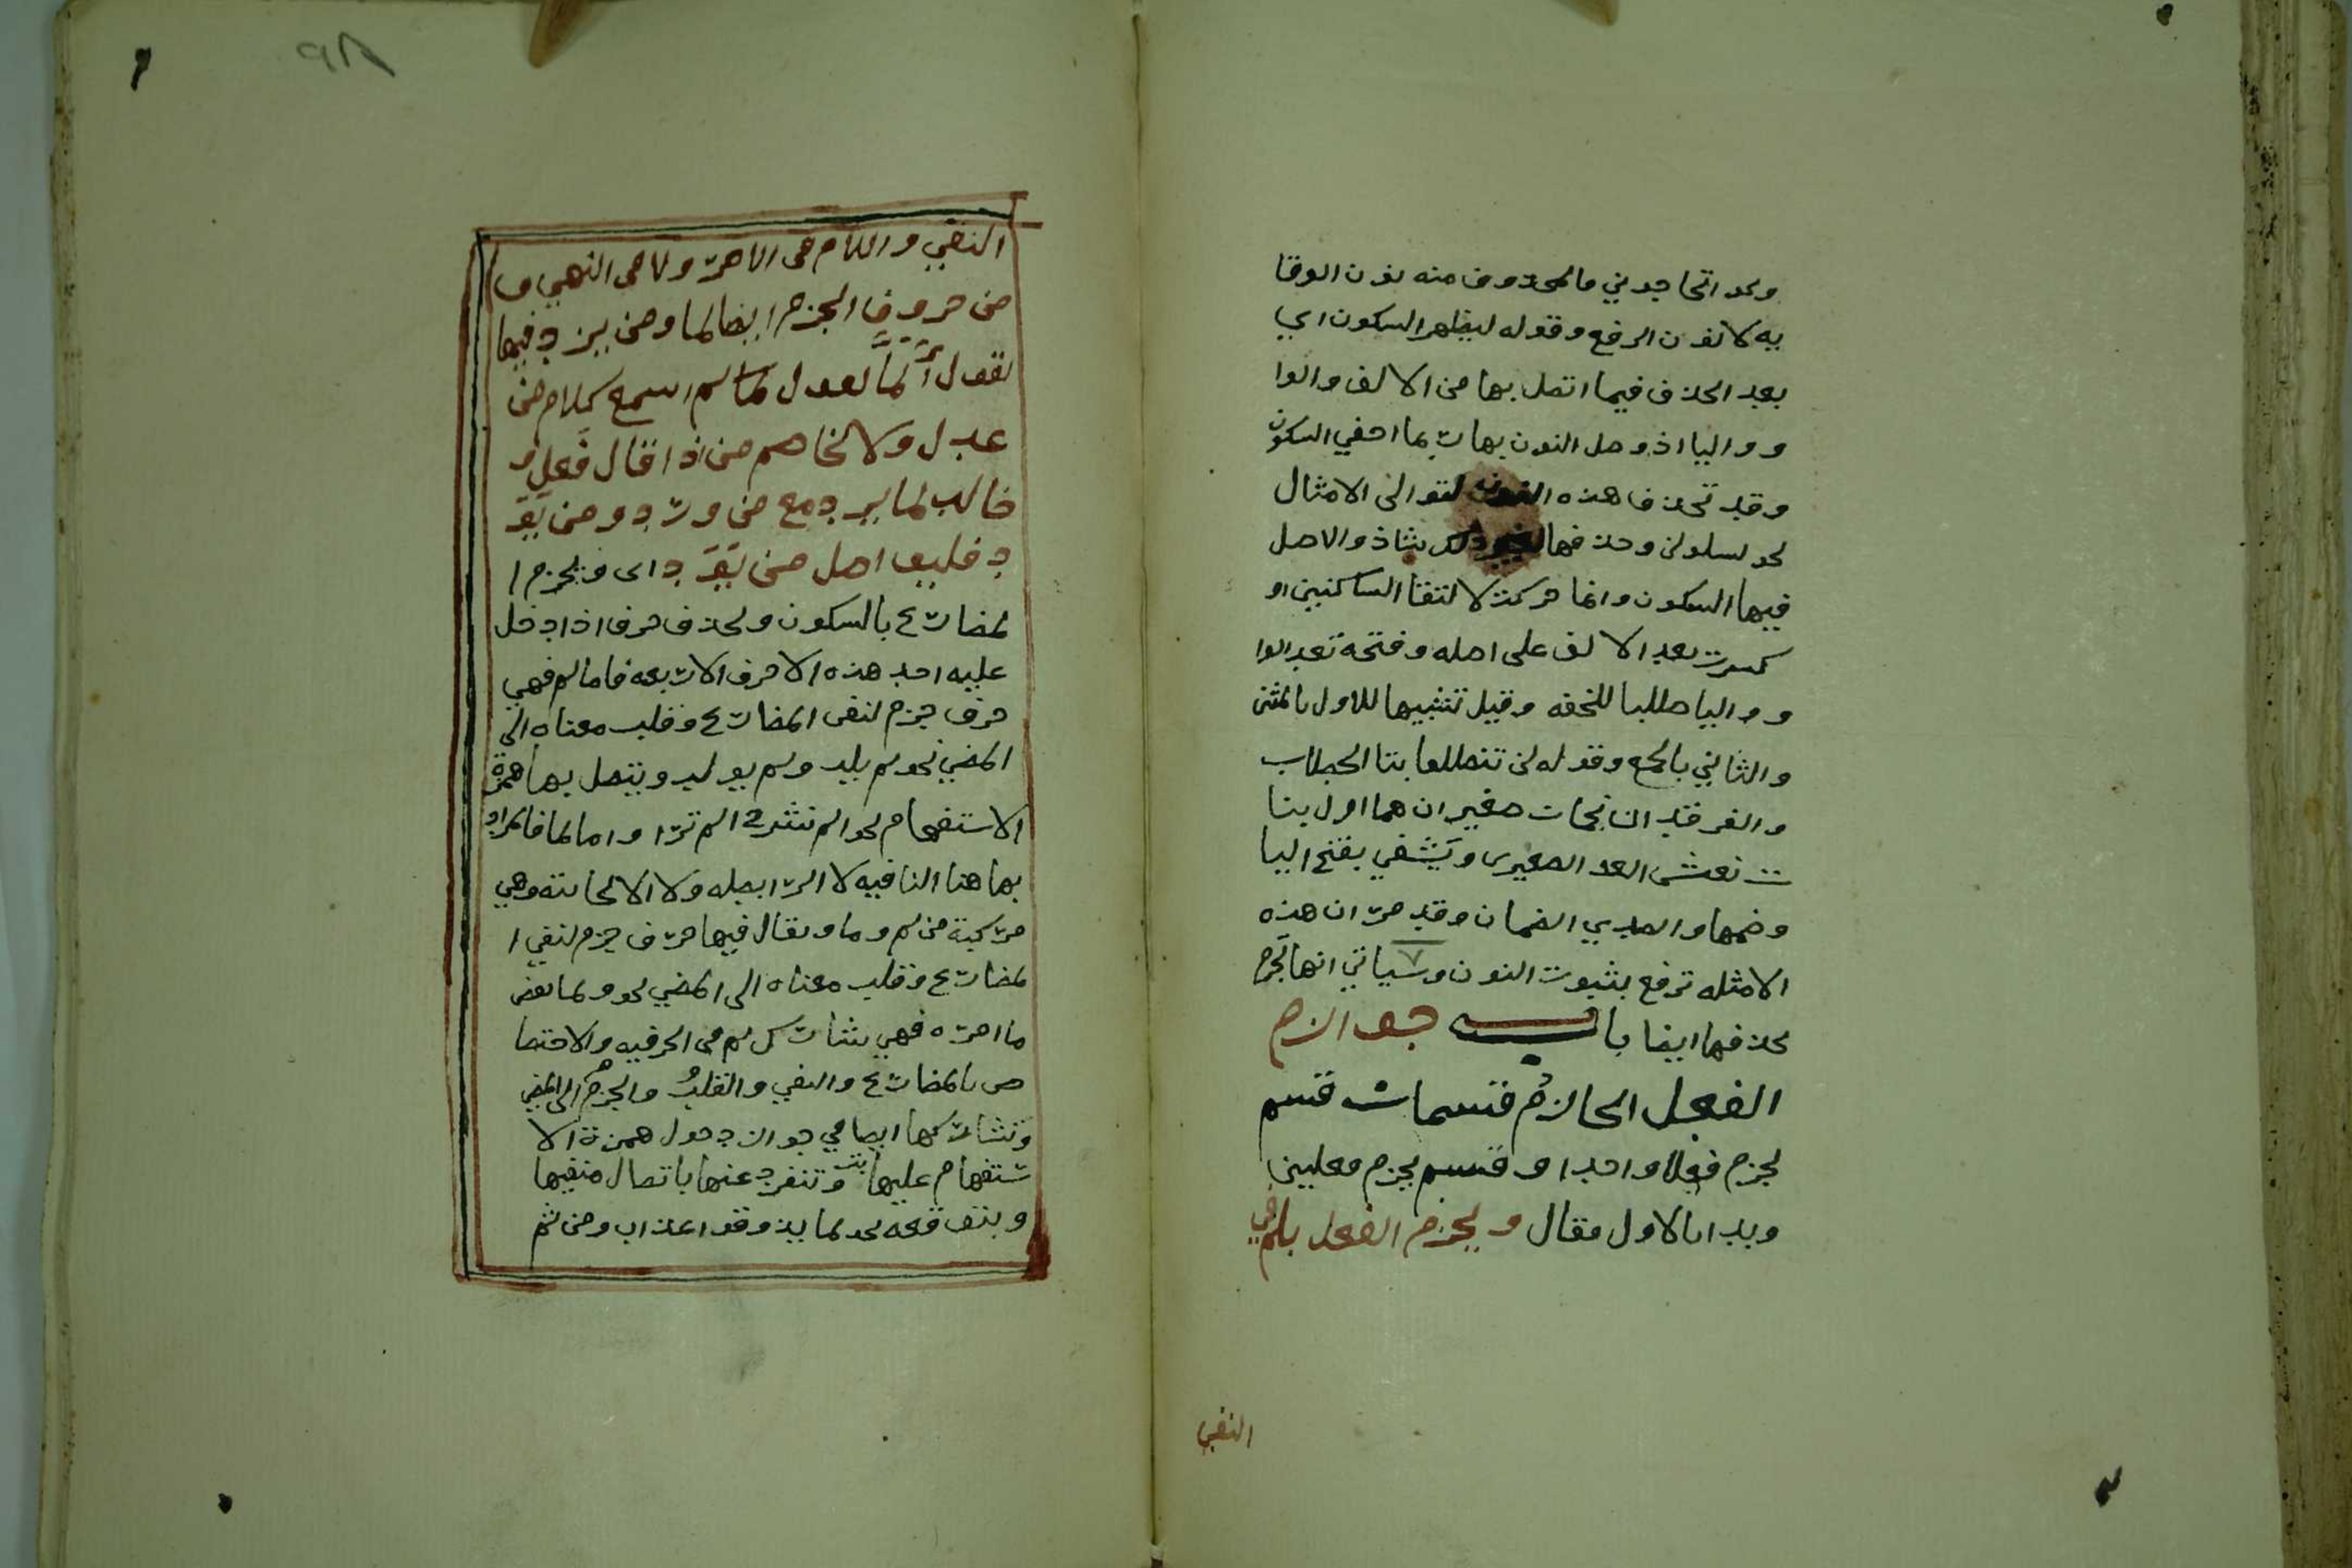 ونحو اتحاجوني فالمحذوف منه نون الوقا
يه لا نون الرفع وقوله ليظهر السكون اي
بعد الحذف فيما اتصل بها من الالف والوا
و واليا اذ وصل النون بها ربما اخفي السكون
وقد تحذف هذه النون لتوالى الامثال
نحو لتبلون وحذفها لغير ذلك شاذ والاصل
فيها السكون وانما حركت لالتقا الساكنين او
كسرت بعد الالف على اصله وفتحة بعد الوا
و واليا طلبا للخفه وقيل تشبيها للاول بالمثنى
والثاني بالجمع وقوله لن تنطلقا بتا الخطاب
والفرقدان نجمان صغيران هما اول بنا
ت نعش الصغرى ويشفي بفتح اليا
وضمها والصدي الضمان وقد مر ان هذه
الامثله ترفع بثبوت النون وسياتي انها تجزم
بحذفها ايضا باب جوازم
الفعل الجازم قسمان قسم
يجزم فعلا واحدا وقسم يجزم فعلين
وبدا بالاول فقال ويجزم الفعل بلم في
النفي
النفي واللام في الامر ولا في النهي و
من حروف الجزم ايضا لما ومن يزد فيها
يقول ألما تقول لما لم اسمع كلام من
عدل ولا تخاصم من اذا قال فعل و
خالد لما يرد مع من ورد ومن يَوَ
د فليواصل من يَوَد اى ويجزم ا
لمضارع بالسكون وبحذف حرف اذا دخل
عليه احد هذه الاحرف الاربعه فاما لم فهي
حرف جزم لنفى المضارع وقلب معناه الى
المضي نحو لم يلد ولم يولد ويتصل بها همزة
الاستفهام نحو الم نشرح الم تر ا واما لما فالمراد
بها هنا النافيه لا الرابطه ولا الايجابيه وهي
مركبة من لم وما ويقال فيها حرف جزم لنفي ا
لمضارع وقلب معناه الى المضي نحو ولما يقض
ما امره فهي تشارك لم فى الحرفيه والاختصا
ص بالمضارع والنفي والقلب والجزم الى المضي
وتشاركها ايضا في جواز دخول همزة الا
ستفهام عليها وتنفرد عنها باتصال منفيها
وبتوقعه نحو لما يذوقوا عذاب ومن ثم